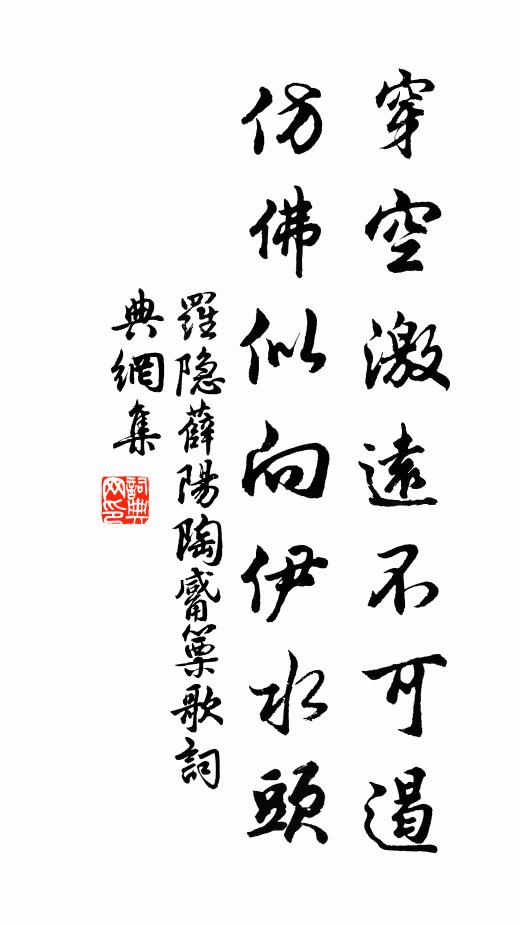 穿空激遠不可遏
仿佛似向伊水頭
羅隐薛陽陶觱篥歌詞
典網集
詞典
网印